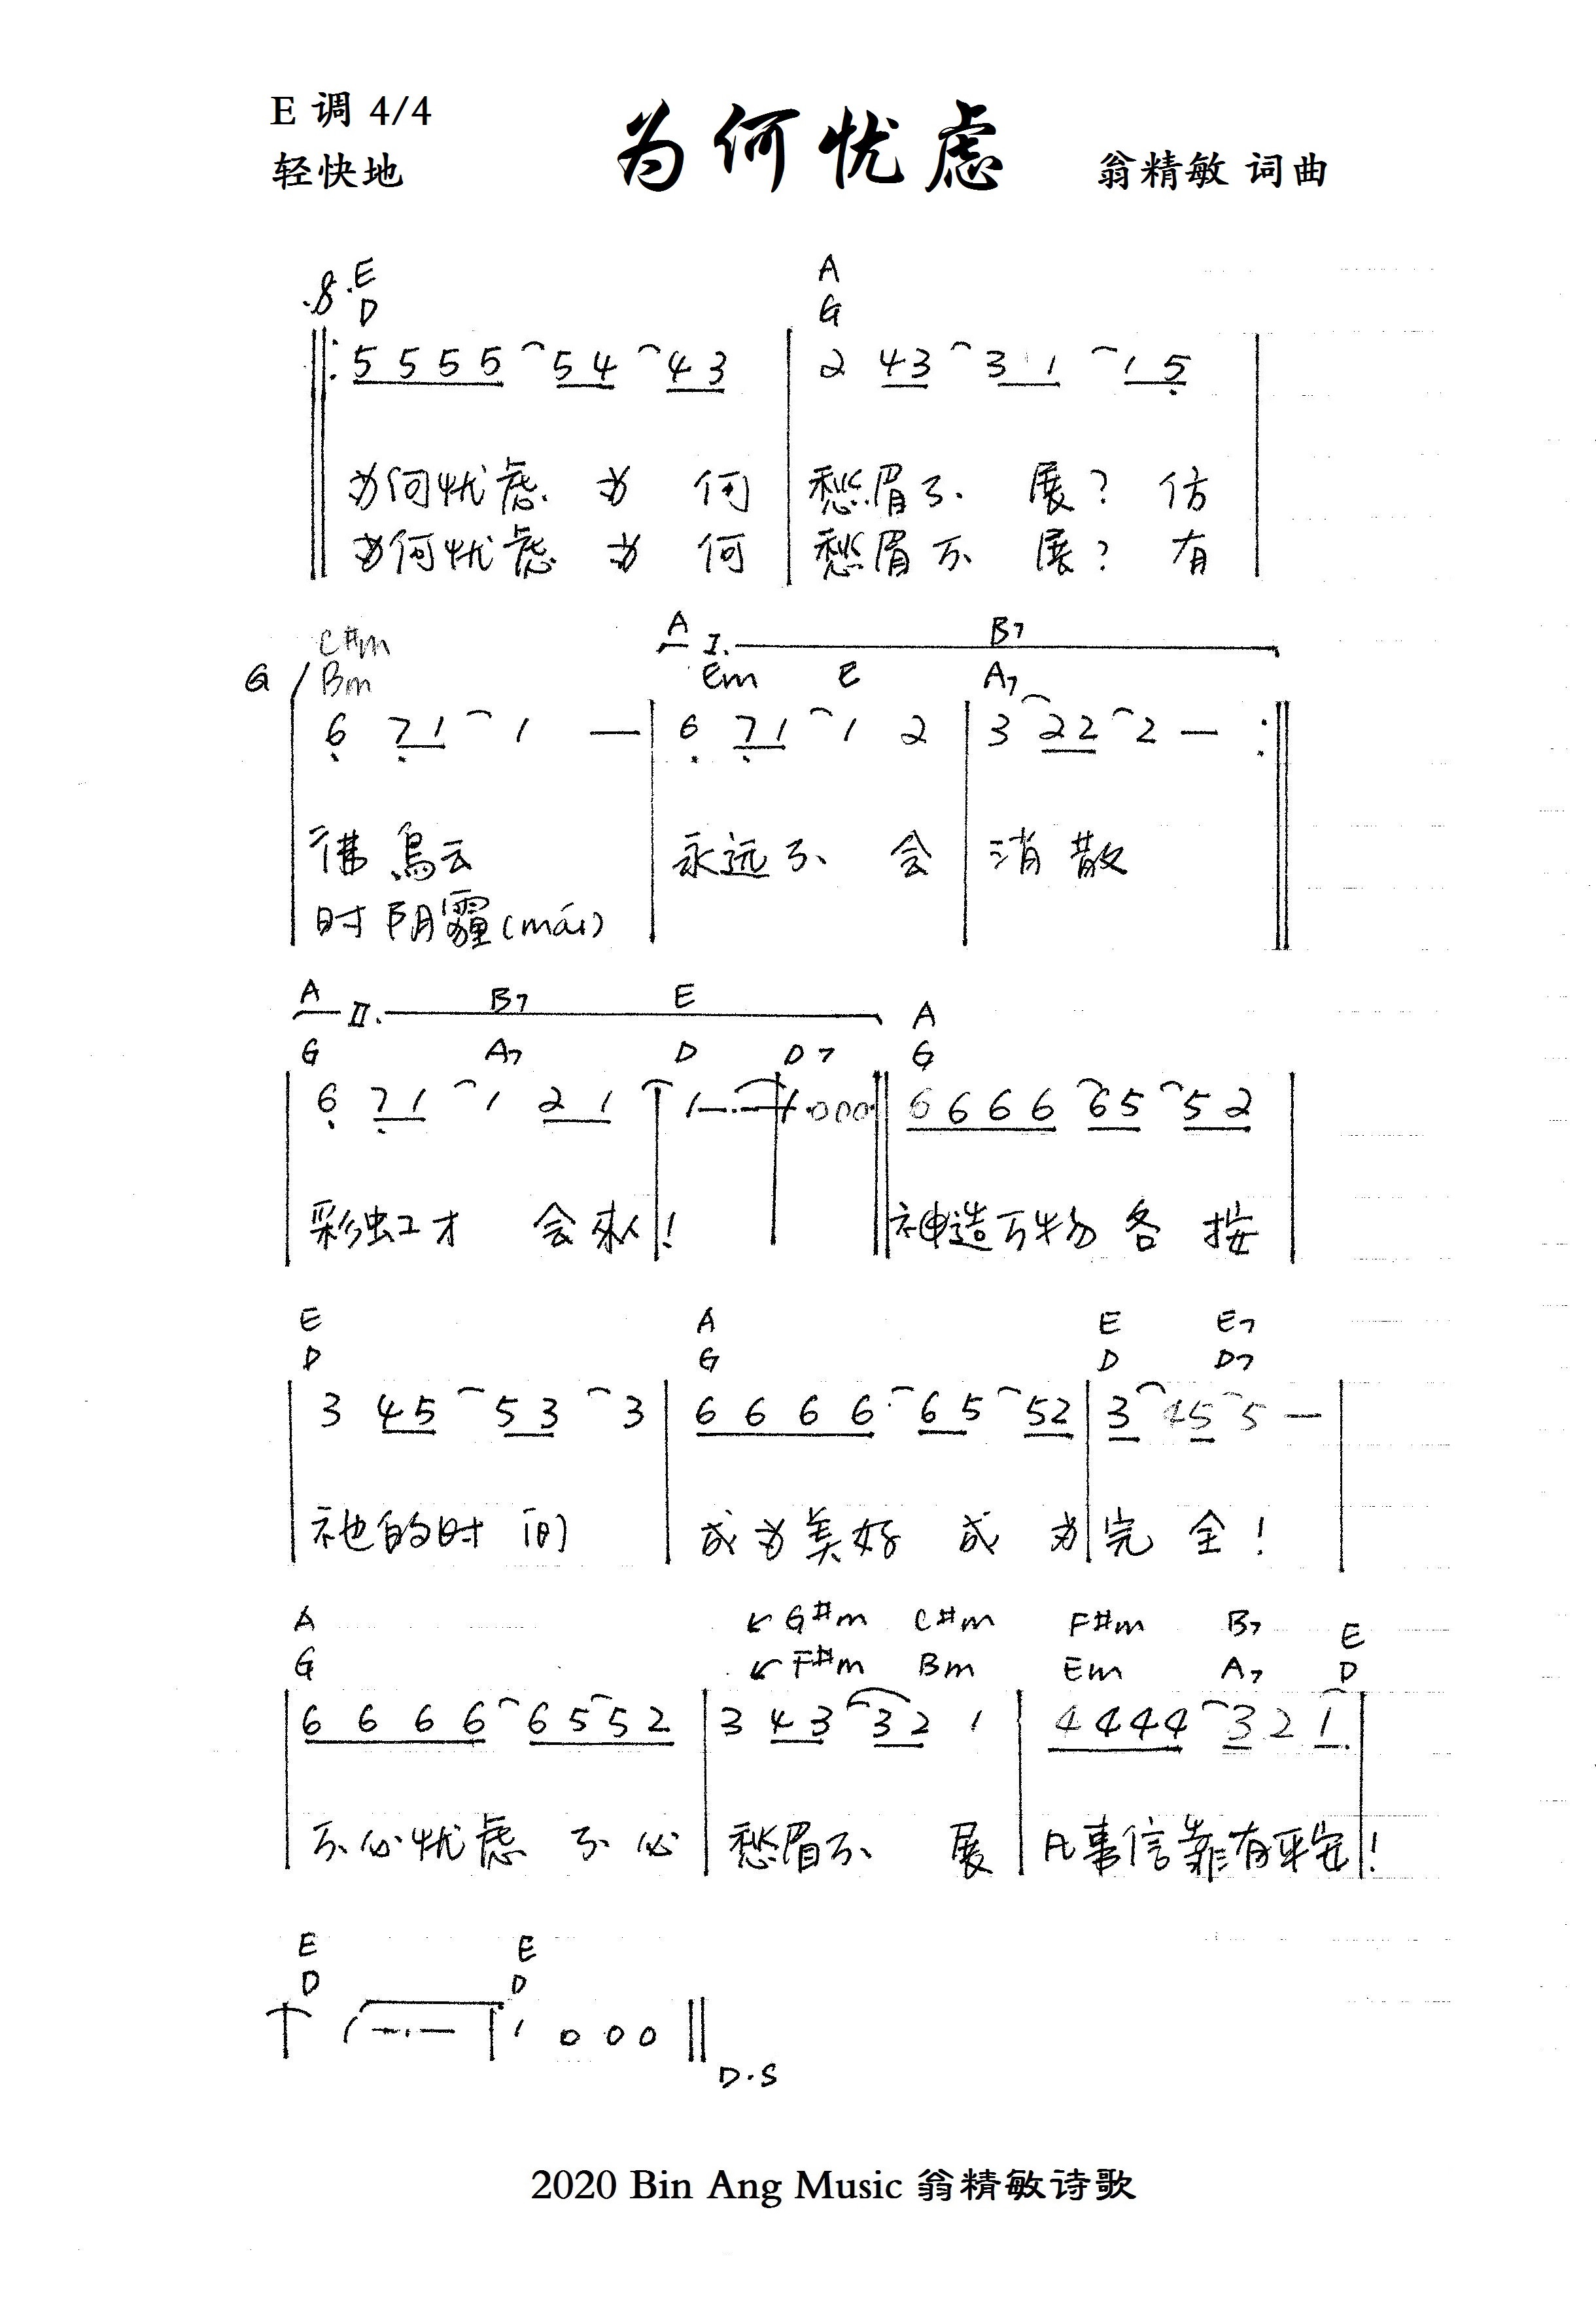 E 调 4/4
为何忧虑
轻快地
翁精敏 词曲
E A
D G
5 5 5 5 5 4 4 3 2 4 3 3 1 1 5
为何忧虑 为 何 愁眉不 展? 仿
为何忧虑 为 何 愁眉不 展? 有
C#m A I. B7
G / Bm Em E A7
6 7 1 1 — 6 7 1 1 2 3 2 2 2 —
彿 烏云 永远不 会 消 散
时 阴霾(mái)
A II. B7 E A
G A7 D D7 G
6 7 1 1 2 1 1 — · — 1 · 0 0 0 6 6 6 6 6 5 5 2
彩虹才 会來! 神造万物 各 按
E A E E7
D G D D7
3 4 5 5 3 3 6 6 6 6 6 5 5 2 3 4 5 5 —
祂的时 间 成为美好 成 为 完 全!
A G#m C#m F#m B7 E
G F#m Bm Em A7 D
6 6 6 6 6 5 5 2 3 4 3 3 2 1 4 4 4 4 3 2 1
不必忧虑 不 必 愁眉不 展 凡事信靠有平安!
E E
D D
1 — · — 1 0 0 0
D.S
2020 Bin Ang Music 翁精敏诗歌